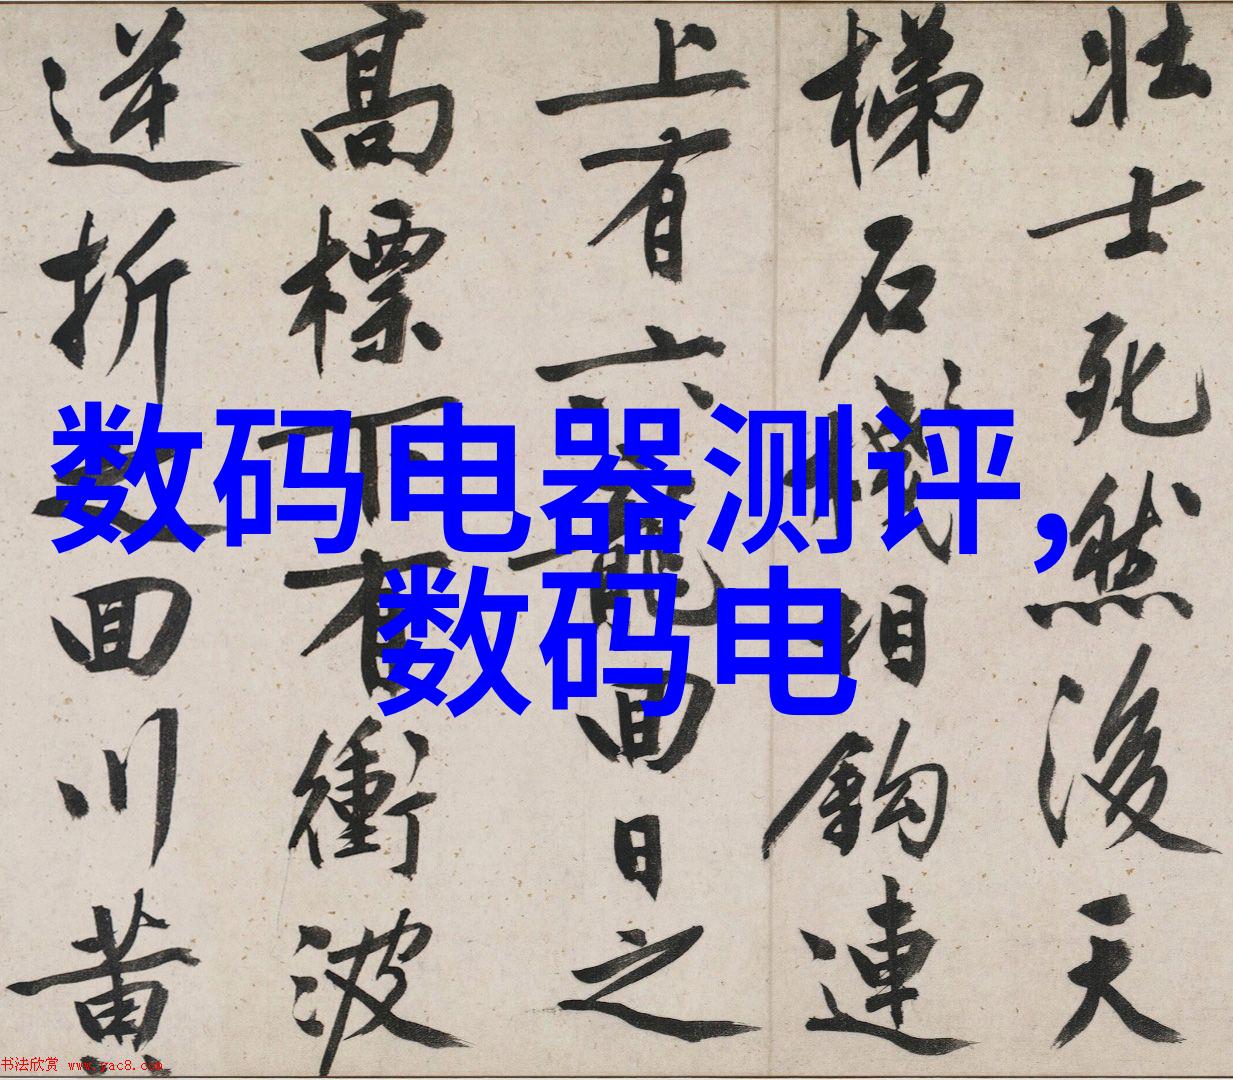 壮士死然後天
梯石棧相鈎連
上有六龍回日之
高標下有衝波
逆折之回川黄
数码电器测评，
数码电
书法欣赏 www.yac8.com